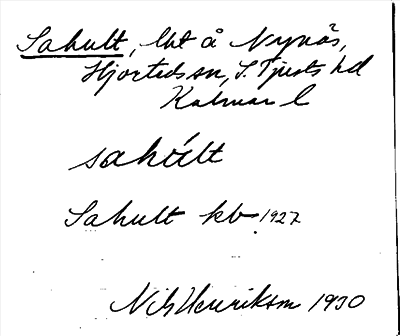 Sahult, lht å Nynäs,
Hjorteds sn, S. Tjusts hd
Kalmar l
sahúlt
Sahult kb 1927
Nils Henriksm 1930